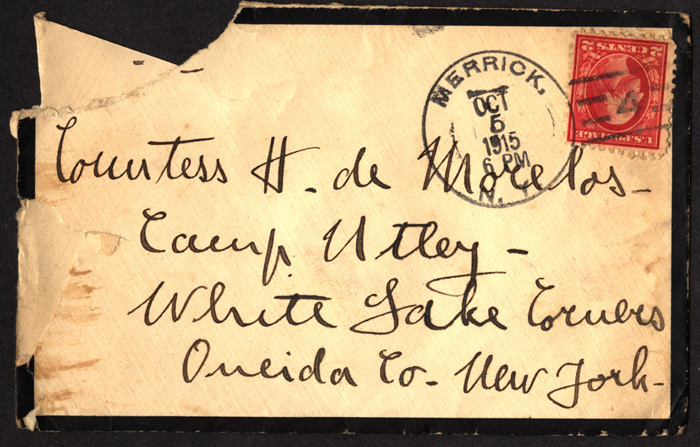 MERRICK.
OCT
5
1915
6 PM
N. Y.
2 CENTS 2
U.S. POSTAGE
4
Countess H. de Morelos-
Camp Utley-
White Lake Corners
Oneida Co- New York-